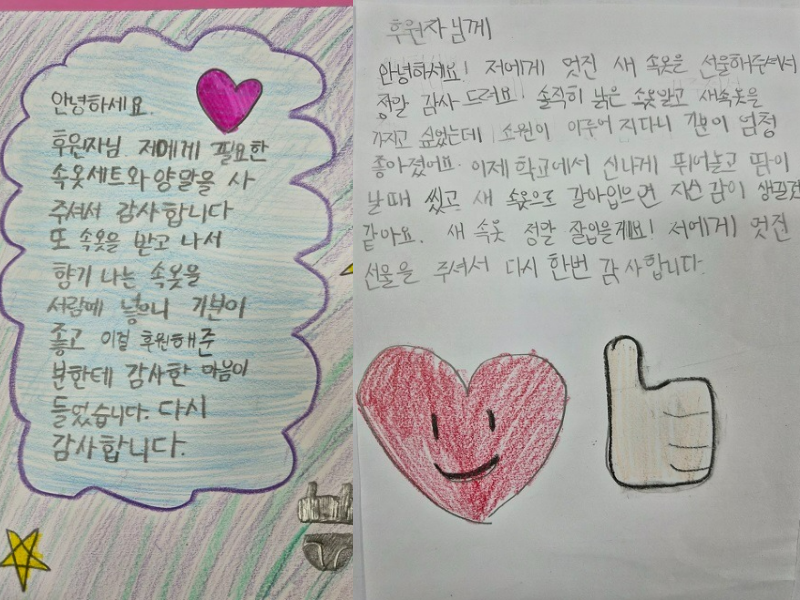 안녕하세요.
후원자님. 저에게 필요한
속옷세트와 양말을 사
주셔서 감사합니다
또 속옷을 받고 나서
향기 나는 속옷을
서랍에 넣으니 기분이
좋고 이걸 후원해준
분한테 감사한 마음이
들었습니다. 다시
감사합니다.
후원자님께
안녕하세요! 저에게 멋진 새 속옷을 선물해주셔서
정말 감사 드려요! 솔직히 낡은 속옷말고 새속옷을
가지고 싶었는데 소원이 이루어 지다니 기분이 엄청
좋아졌어요. 이제 학교에서 신나게 뛰어놀고 땀이
날때 씻고 새 속옷으로 갈아입으면 자신감이 생길것
같아요. 새 속옷 정말 잘입을게요! 저에게 멋진
선물을 주셔서 다시 한번 감사합니다.